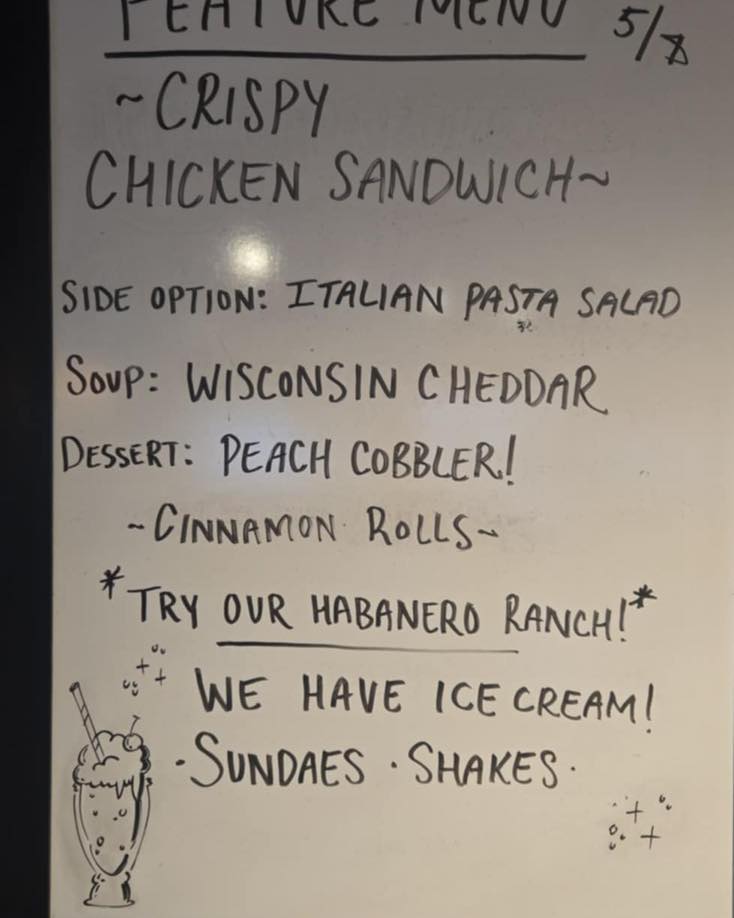 FEATURE MENU 5/8
~CRISPY
CHICKEN SANDWICH~
SIDE OPTION: ITALIAN PASTA SALAD
SOUP: WISCONSIN CHEDDAR
DESSERT: PEACH COBBLER!
~CINNAMON ROLLS~
*TRY OUR HABANERO RANCH!*
WE HAVE ICE CREAM!
·SUNDAES ·SHAKES·